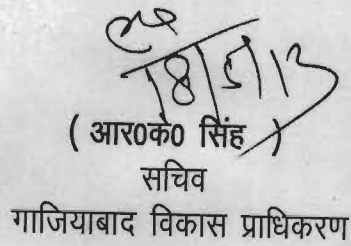 18/5/13
( आर0के0 सिंह )
सचिव
गाजियाबाद विकास प्राधिकरण